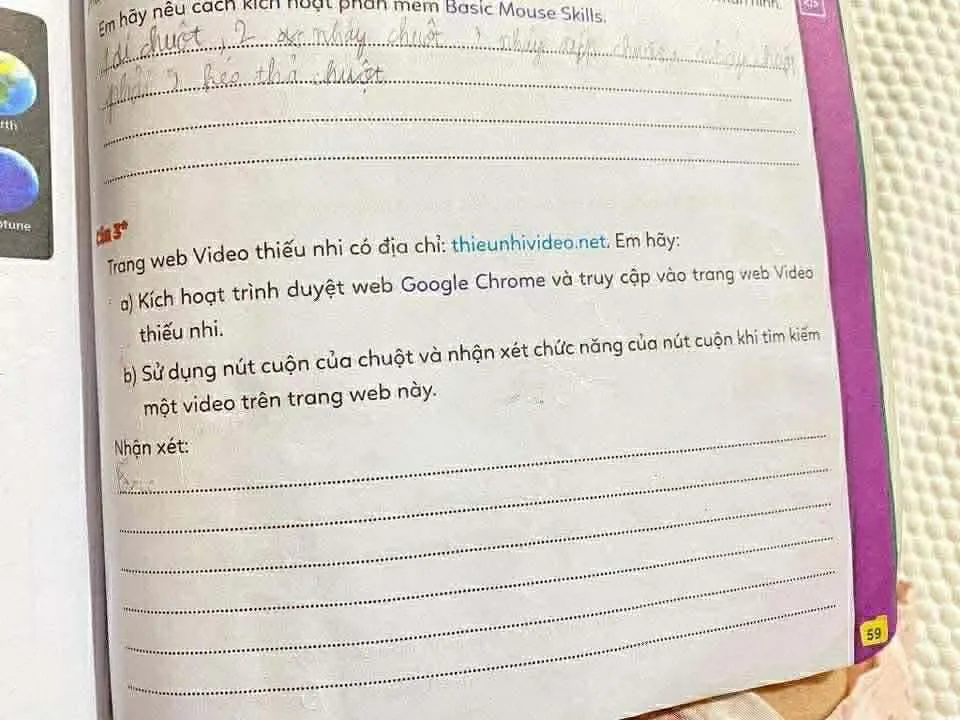 Em hãy nêu cách kích hoạt phần mềm Basic Mouse Skills.
chuột, 2 nháy chuột nháy chuột
phải kéo thả chuột
rth
ptune
Câu 3*
Trang web Video thiếu nhi có địa chỉ: thieunhivideo.net. Em hãy:
a) Kích hoạt trình duyệt web Google Chrome và truy cập vào trang web Video
thiếu nhi.
b) Sử dụng nút cuộn của chuột và nhận xét chức năng của nút cuộn khi tìm kiếm
một video trên trang web này.
Nhận xét:
59